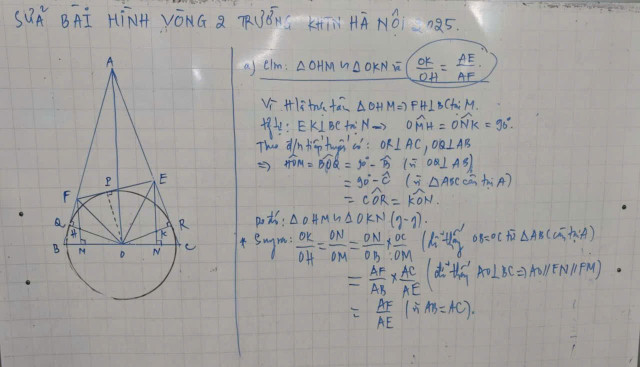 SỬA BÀI HÌNH VÒNG 2 TRƯỜNG KHTN HÀ NỘI 2025.
a) C/m: △OHM ∽ △OKN và OK/OH = AE/AF
Vì H là trực tâm △OHM ⇒ FH⊥BC tại M.
EK⊥BC tại N ⇒ OMH = ONK = 90°.
Theo tiếp tuyến có: OR⊥AC, OQ⊥AB
⇒ HOM = BOQ = 90° - B (vì OQ⊥AB)
= 90° - C (vì △ABC cân tại A)
= COR = KON.
Do đó: △OHM ∽ △OKN (g-g).
* Suy ra: OK/OH = ON/OM = ON/OB × OC/OM (OB=OC vì △ABC cân tại A)
= AF/AB × AC/AE (AO⊥BC ⇒ AO//EN//FM)
= AF/AE (vì AB=AC).
A
F
P
E
Q
R
H
K
B
M
O
N
C